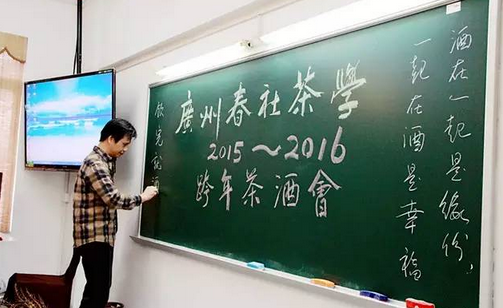 廣州春社茶學
2015～2016
跨年茶酒會
酒在一起是緣份,
一起在酒是幸福
飲完